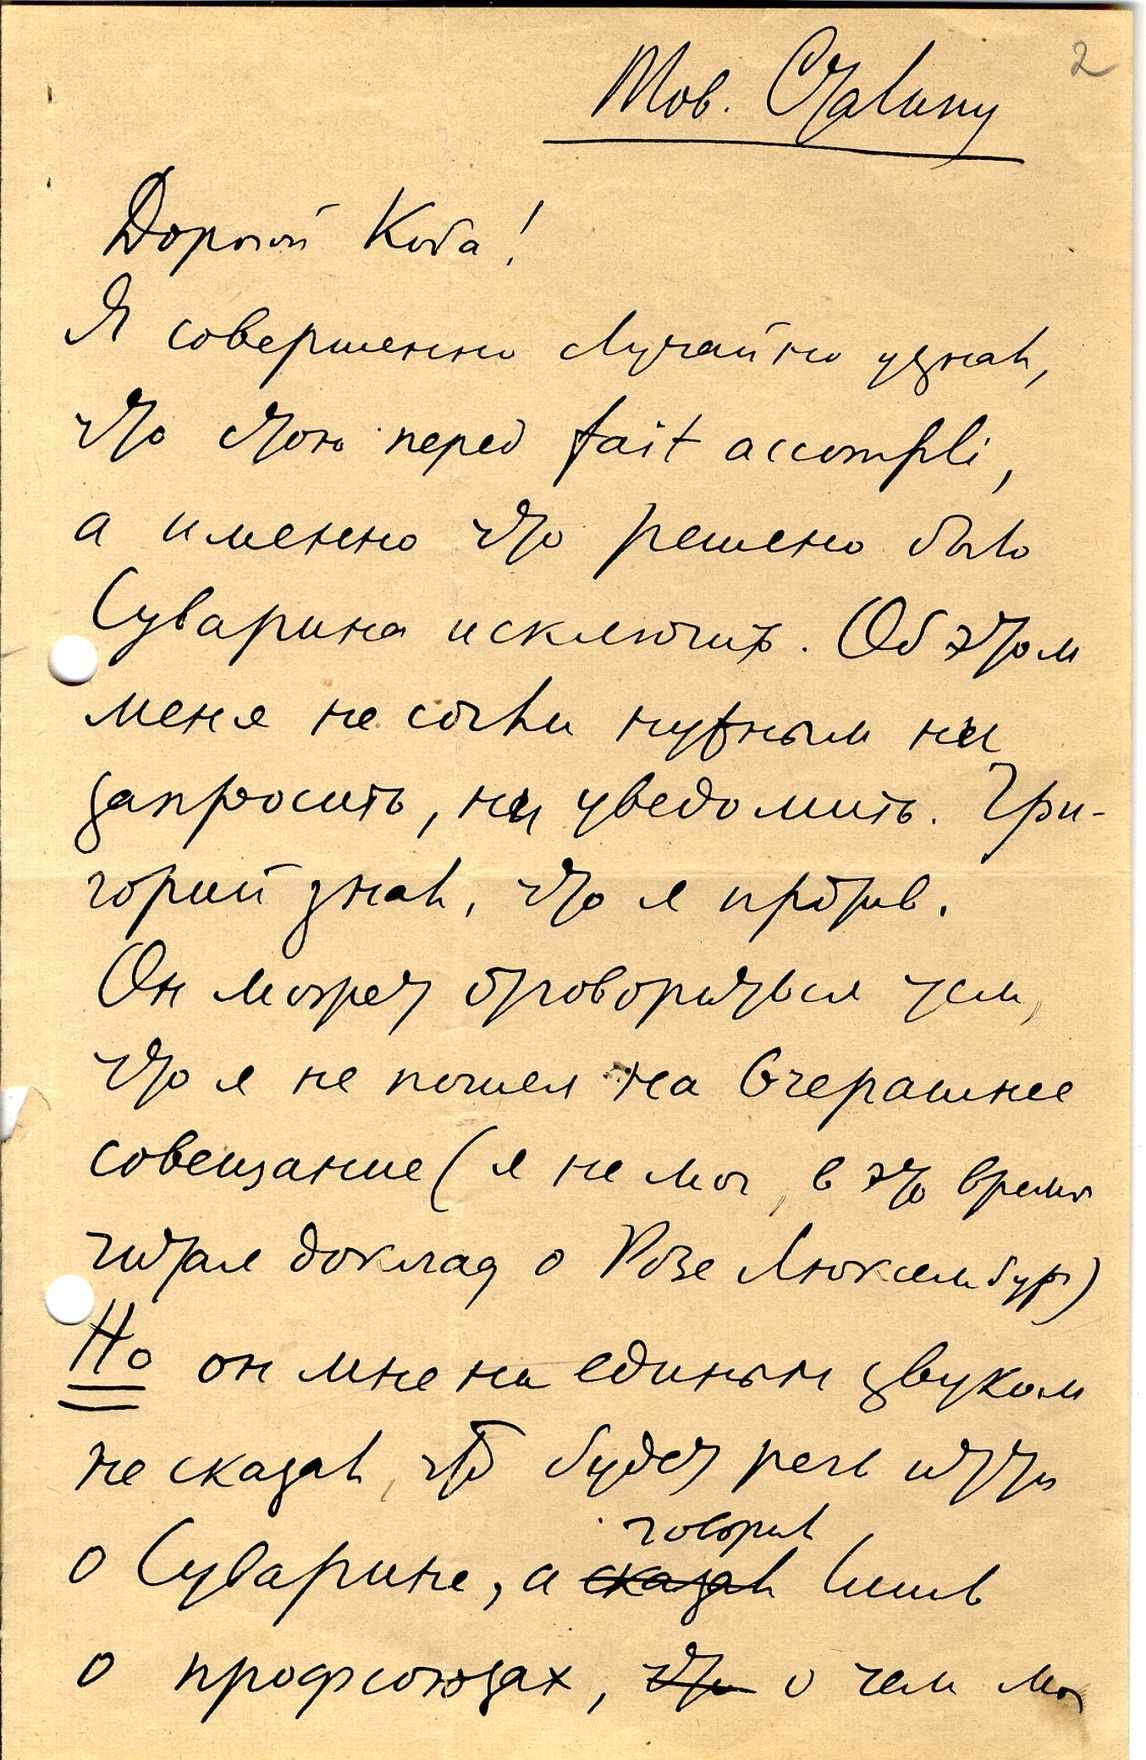 2
Тов. Сталину
Дорогой Коба!
Я совершенно случайно узнал,
что стою перед fait accompli,
а именно что решено было
Суварина исключить. Об этом
меня не сочли нужным ни
запросить, ни уведомить. Гри-
горий знал, что я против.
Он может отговориться тем,
что я не пошел на вчерашнее
совещание (я не мог, в это время
читал доклад о Розе Люксембург)
Но он мне ни единым звуком
не сказал, что будет речь идти
говорил
о Суварине, а сказал лишь
о профсоюзах, что о чем мы